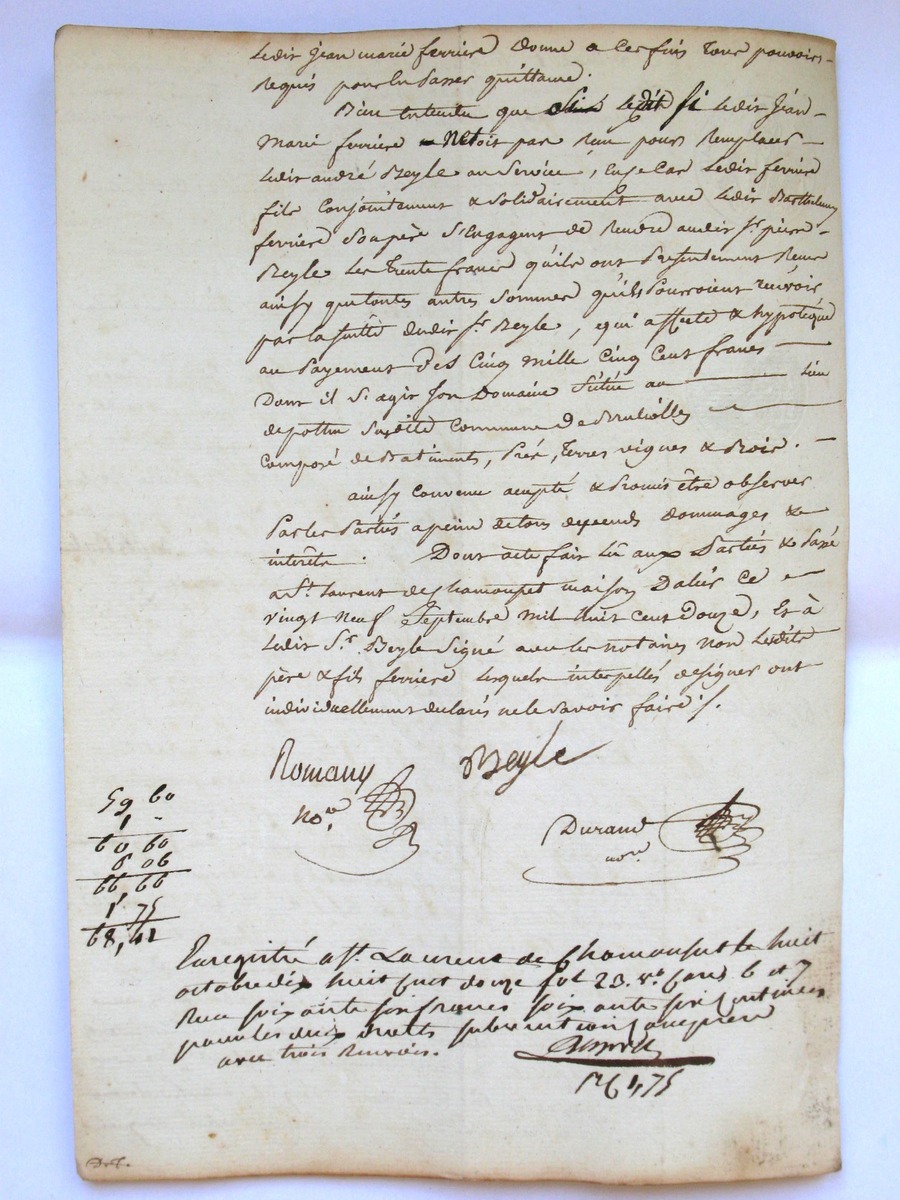 ledit jean marie ferriere donne a ces fins tous pouvoirs
requis pour en passer quittance.
Bien entendu que si ledit jean
Marie ferriere netoit pas reçu pour remplacer
ledit andré Beyle au service, en ce cas ledit ferriere
fils conjointement & solidairement avec ledit Barthelemy
ferriere son père s'engagent de rendre audit sr. pierre
Beyle les trente francs qu'ils ont presentement reçu
ainsy que toutes autres sommes qu'ils pourroient recevoir
par la suitte dudit sr. Beyle, qui affecte & hypotèque
au payement des cinq mille cinq cent francs
dont il s'agit son domaine situé au lieu
de susdite commune de
composé de Batiments, prés, terres vignes & Bois.
ainsy convenu accepté & promis être observer
par les parties a peine de tous depends dommages &
interêts. Dont acte fait lû aux parties & passé
a St. Laurent de chamousset maison Dalier ce
vingt neuf septembre mil huit cent douze, Et à
ledit Sr. Beyle signé avec les notaires non lesdits
père & fils ferriere lesquels interpellés de signer ont
individuellement declarés ne le savoir faire ./.
Romany Beyle
nore. Durand
nore.
59 60
1 -
60 60
6 06
66, 66
1, 75
68, 41
Enregistré a St. Laurent de Chamousset le huit
octobre dix huit cent douze fol 23. vo. cases 6 et 7
Reçu soixante six francs soixante six centimes
pour les deux droits subvention comprise
avec trois renvois.
1, 75